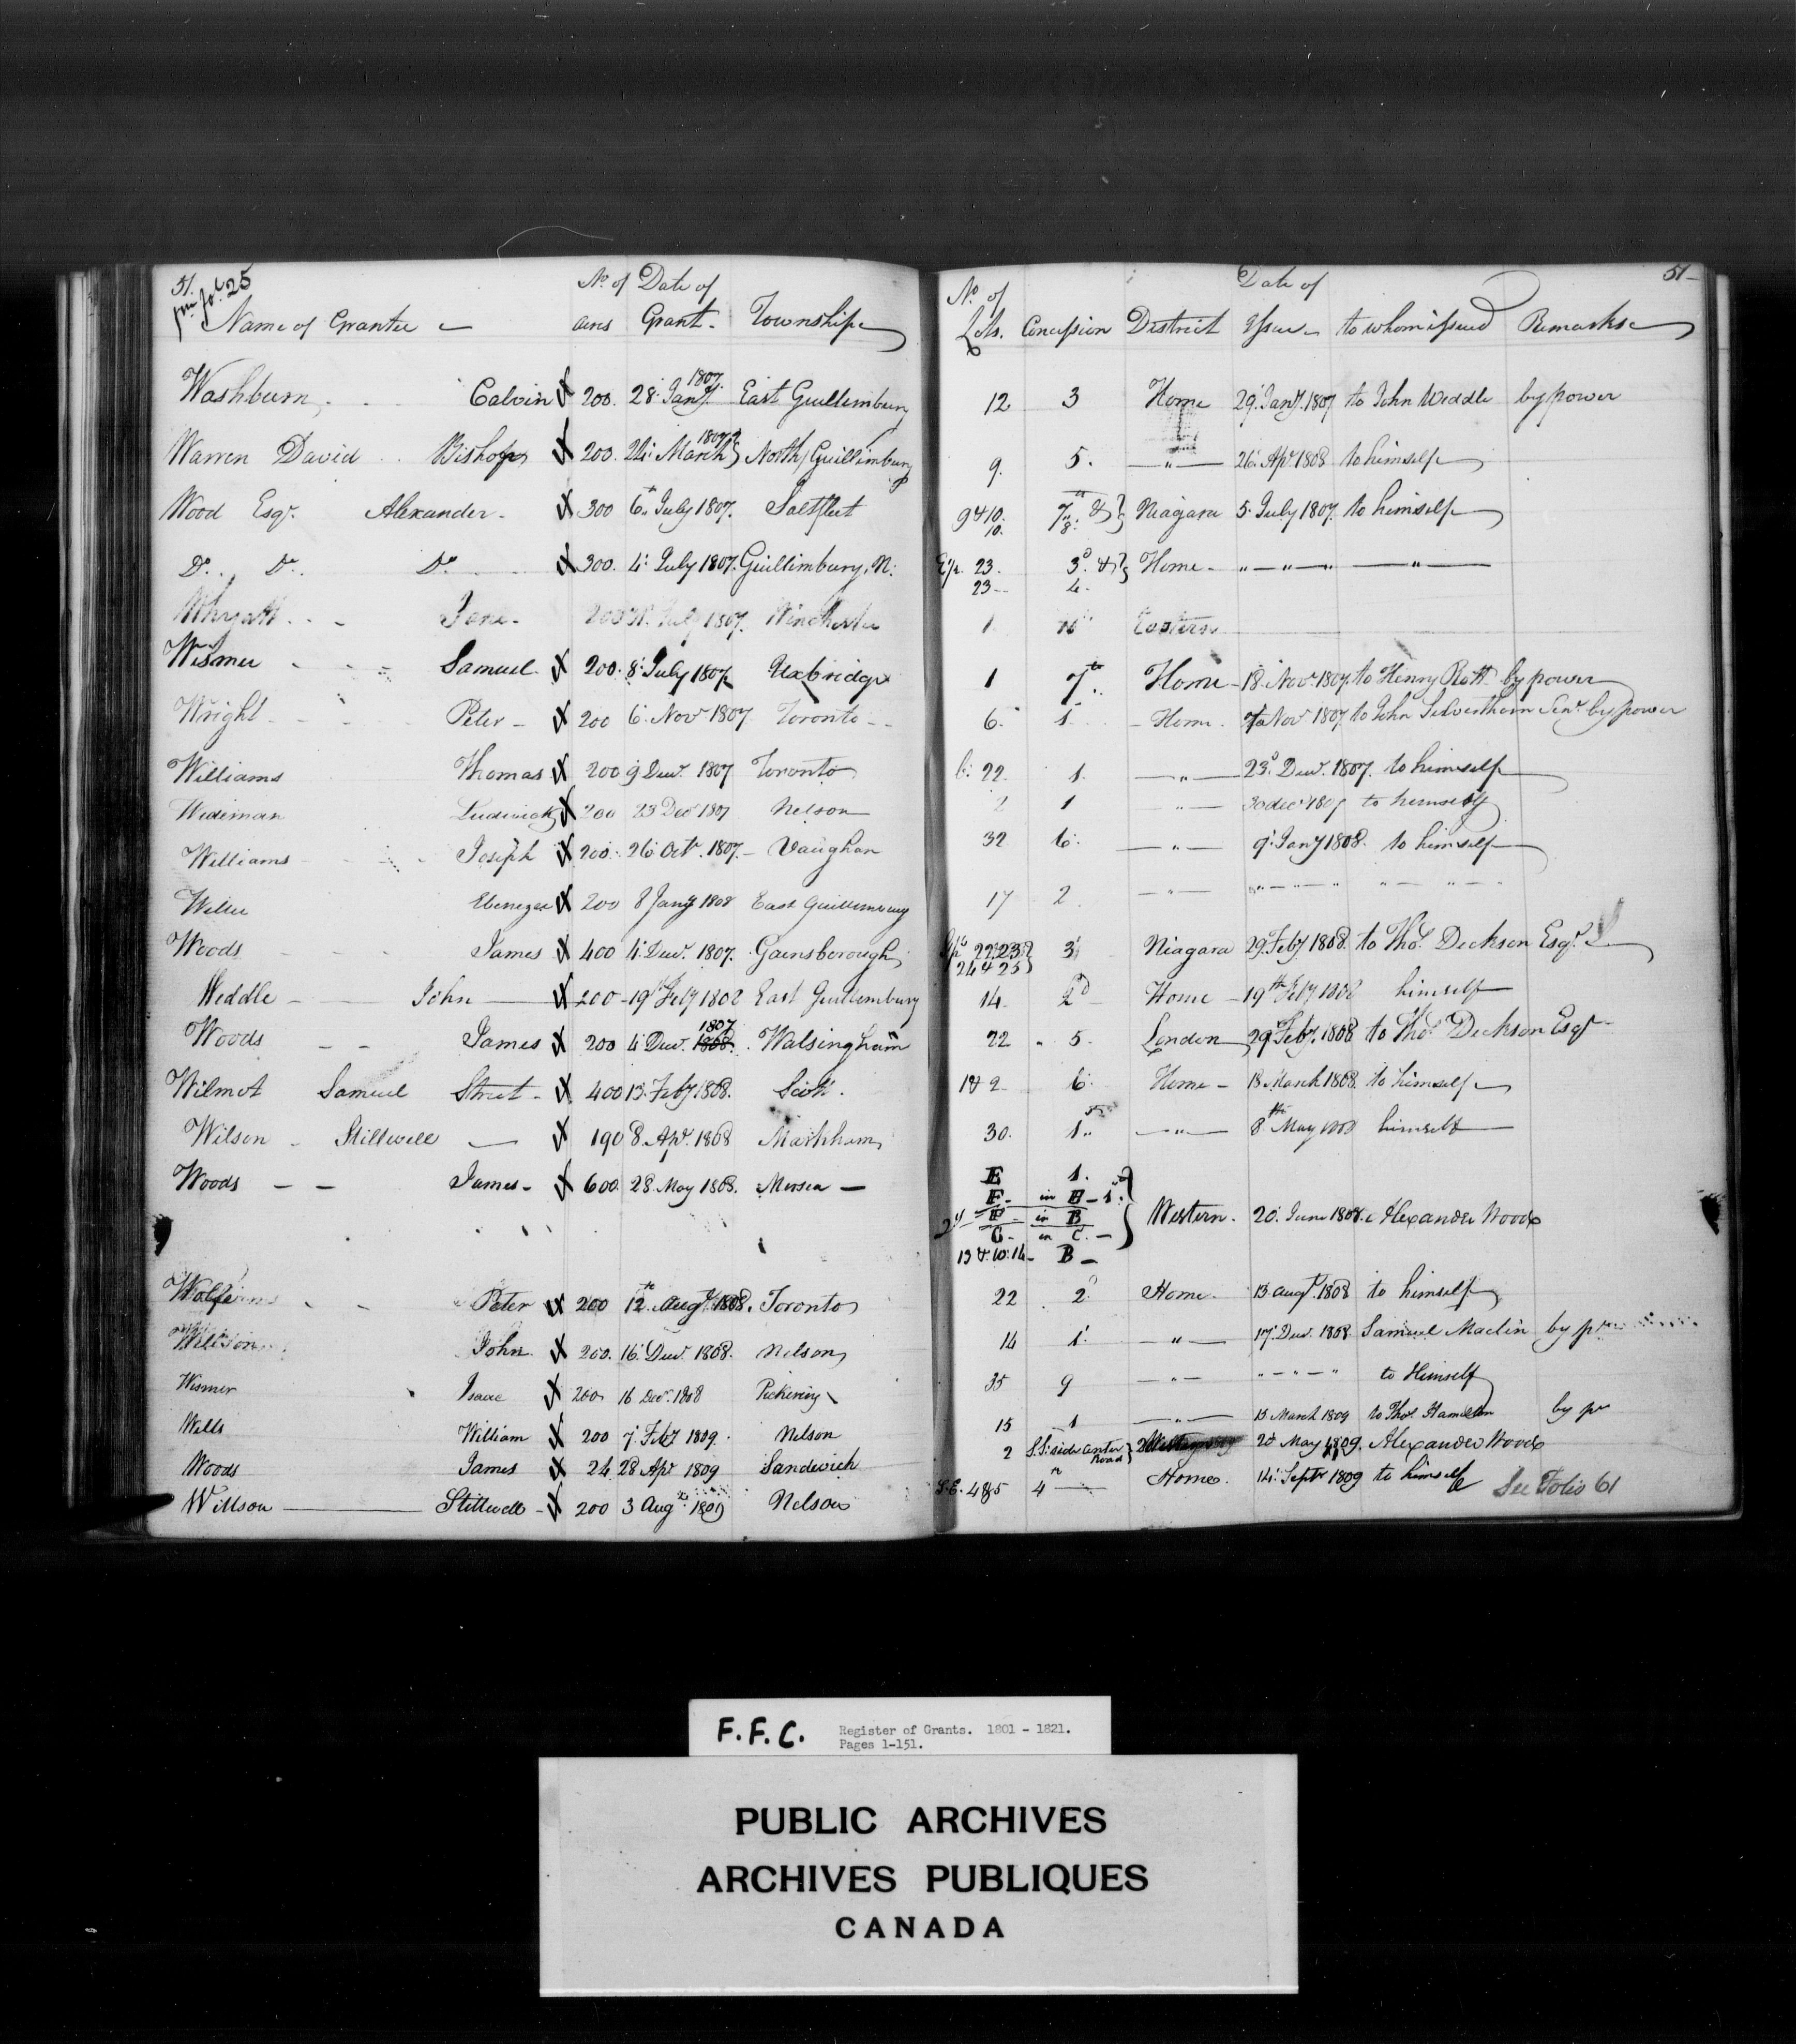 51.
fm fol. 25
No of Date of
Name of Grantee acres Grant. Township
Washburn, Calvin 200. 28 Jany. 1807 East Guillimbury
Warren David Bishop 200. 24 March 1807 North Guillimbury
Wood Esqr. Alexander 300 6th July 1807. Saltfleet
Do. Do. Do. 300. 4 July 1807. Guillimbury, N.
Jane 200 July 1807. Winchester
Wismer Samuel 200. 8 July 1807 Uxbridge
Wright Peter 200 6 Novr 1807 Toronto
Williams Thomas 200 9 Decr. 1807 Toronto
Wideman Ludwick 200 23 Decr 1807 Nelson
Williams Joseph 200. 26 Octr. 1807. Vaughan
Weller Ebenezer 200 8 Jany 1808 East Guillimbury
Woods James 400 4 Decr. 1807. Gainsborough
Weddle John 200 19 Feby 1808 East Guillimbury
Woods James 200 4 Decr. 1807 1808. Walsingham
Wilmot Samuel Street 400 13 Feby 1808. Scott.
Wilson Stillwell 190 8 Apr. 1808 Markham
Woods James 600. 28 May 1808. Mersea
Wolfe Peter 200 12th Augt. 1808. Toronto
Willson John 200. 16 Decr. 1808. Nelson
Wismer Isaac 200 16 Decr. 1808 Pickering
Wells William 200 7 Feby 1809. Nelson
Woods James 24. 28 Apr 1809 Sandwich
Willson Stillwell 200 3 Augt. 1809 Nelson
51
No of Date of
Lots. Concession District Issue to whom issued Remarks
12 3 Home 29 Jany. 1807 to John Weddle by power
9. 5. " 26 Apr. 1808 to himself
9 & 10. 7th & Niagara 5 July 1807. to himself
10. 8.
23. 3d & Home " " " "
23 4
1 Eastern
1 7th Home 18 Novr. 1807. to Henry by power
6. 1 Home. 7 Novr 1807 to John Silverthorn Senr. by power
22. 1. " 23d Decr. 1807. to himself
2 1 " 30 decr 1807 to himself
32 6. " 9 Jany 1808. to himself
17 2 " " " " " "
22. 23 3 Niagara 29 Feby 1808. to Thos. Dickson Esqr.
24 & 25
14 2d Home 19th Feby 1808 himself
22 5. London 29 Feby. 1808 to Thos. Dickson Esqr
1 & 2 6. Home 18 March 1808. to himself
30. 1st " 8th May 1808 himself
E 1.
F. in E 1.
F in B Western. 20 June 1808. Alexander Woods
C. in C.
13 & 10. 14 B
22 2 Home. 13 augt. 1808 to himself
14 1 " 17 Decr. 1808 Samuel Maclin by pr
35 9 " " " " to Himself
15 1 " 15 March 1809 to Thos. Hamilton by pr
2 S. side Center Road 20 May 1809. Alexander Woods
4 & 5 4 Home. 14. Septr 1809 to himself See Folio 61
F.F.C. Register of Grants. 1801 - 1821.
Pages 1-151.
PUBLIC ARCHIVES
ARCHIVES PUBLIQUES
CANADA